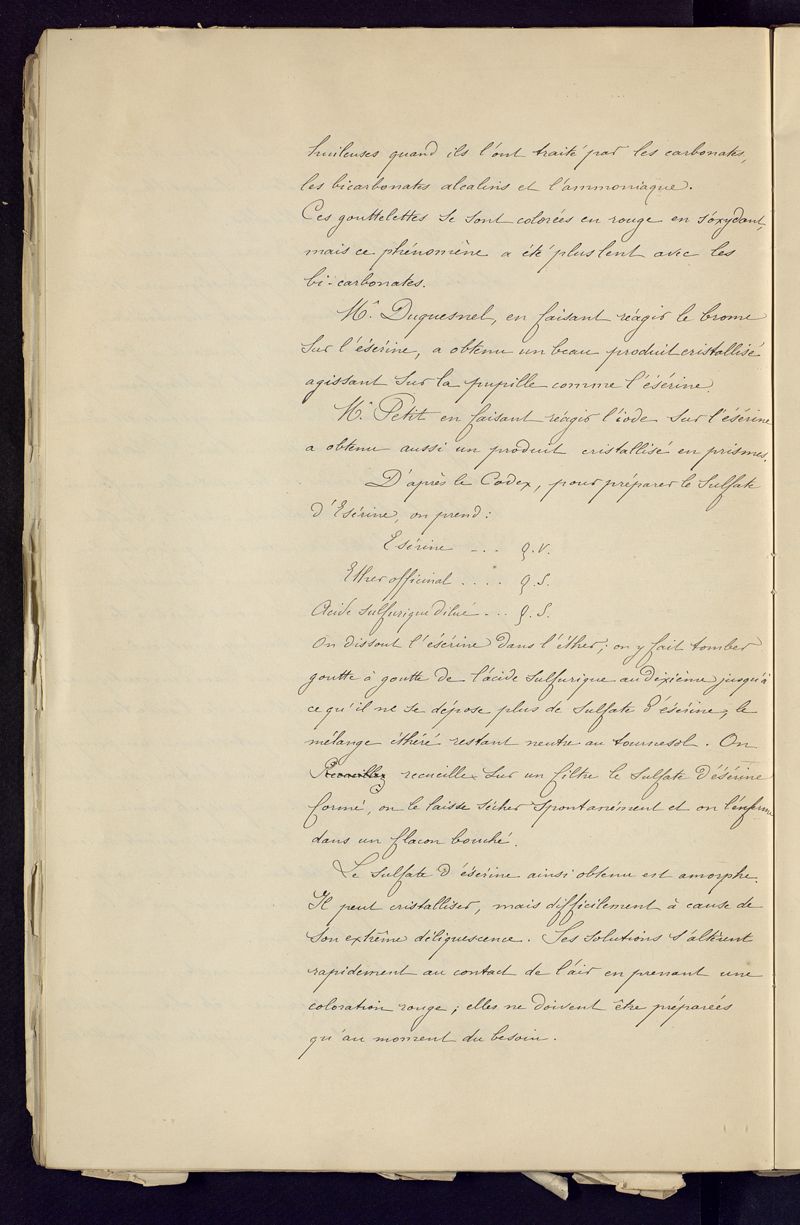 huileuses quand ils l'ont traité par les carbonates,
les bicarbonates alcalins et l'ammoniaque.
Ces gouttelettes se sont colorées en rouge en s'oxydant,
mais ce phénomène a été plus lent avec les
bi-carbonates.
Mr. Duquesnel, en faisant réagir le brome
sur l'ésérine, a obtenu un beau produit cristallisé
agissant sur la pupille comme l'ésérine.
Mr. Petit en faisant réagir l'iode sur l'ésérine
a obtenu aussi un produit cristallisé en prismes.
D'après le Codex, pour préparer le Sulfate
d'Esérine, on prend :
Esérine - .. Q.V.
Ether officinal . . . . Q.S.
Acide sulfurique dilué - .. Q.S.
On dissout l'ésérine dans l'éther; on y fait tomber
goutte à goutte de l'acide sulfurique au dixième jusqu'à
ce qu'il ne se dépose plus de sulfate d'ésérine, le
mélange éthéré restant neutre au tournesol. On
Recueille recueille sur un filtre le sulfate d'ésérine
formé, on le laisse sécher spontanément et on l'enferme
dans un flacon bouché.
Le sulfate d'ésérine ainsi obtenu est amorphe.
Il peut cristalliser, mais difficilement à cause de
son extrême déliquescence. Ses solutions s'altèrent
rapidement au contact de l'air en prenant une
coloration rouge; elles ne doivent être préparées
qu'au moment du besoin.